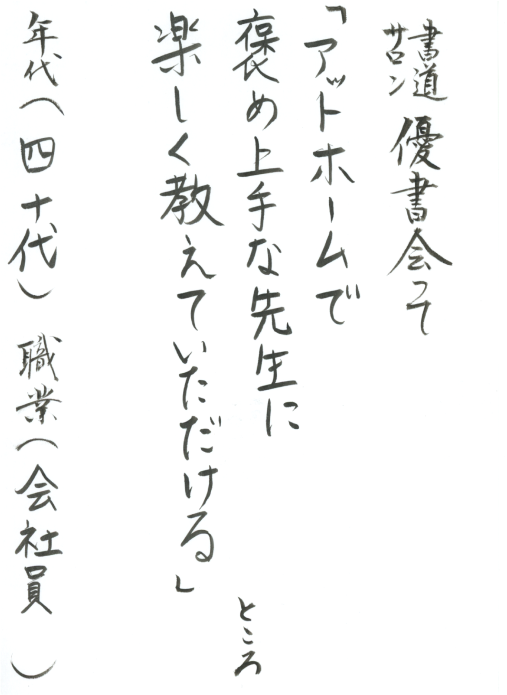 書道サロン 優書会って
「アットホームで
褒め上手な先生に
楽しく教えていただける」
ところ
年代(四十代) 職業(会社員)